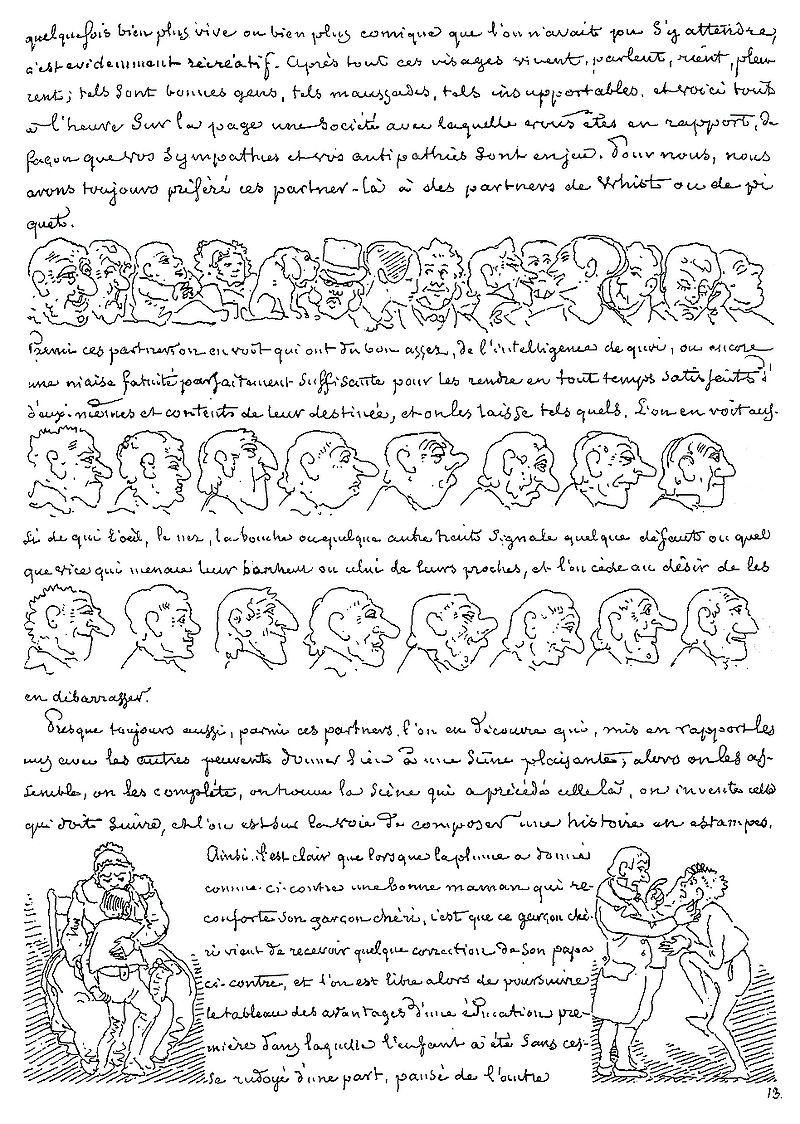 quelquefois bien plus vive ou bien plus comique que l'on n'avait pu s'y attendre,
c'est evidemment récréatif. Après tout ces visages vivent, parlent, rient, pleu
rent; tels sont bonnes gens, tels maussades, tels insupportables. et voici tout
à l'heure sur la page une société avec laquelle vous êtes en rapport, de
façon que vos sympathies et vos antipathies sont en jeu. Pour nous, nous
avons toujours préféré ces partner-là à des partners de Whist ou de pi
quet.
Parmi ces partners on en voit qui ont du bon assez, de l'intelligence de quoi, ou encore
une niaise fatuité parfaitement suffisante pour les rendre en tout temps satisfaits d'
d'eux-mêmes et contents de leur destinée, et on les laisse tels quels. L'on en voit aus-
si de qui l'oeil, le nez, la bouche ou quelque autre trait signale quelque défaut ou quel
que vice qui menace leur bonheur ou celui de leurs proches, et l'on cède au désir de les
en débarrasser.
Presque toujours aussi, parmi ces partners l'on en découvre qui, mis en rapport les
uns avec les autres peuvent donner lieu à une scène plaisante; alors on les as-
semble, on les complète, on trouve la scène qui a précédé celle là, on invente celle
qui doit suivre, et l'on est sur la voie de composer une histoire en estampes.
Ainsi il est clair que lorsque la plume a donné
comme ci-contre une bonne maman qui ré-
conforte son garçon chéri, c'est que ce garçon ché-
ri vient de recevoir quelque correction de son papa
ci-contre, et l'on est libre alors de poursuivre
le tableau des avantages d'une éducation pre-
mière dans laquelle l'enfant a été sans ces-
se rudoyé d'une part, pansé de l'autre
13.